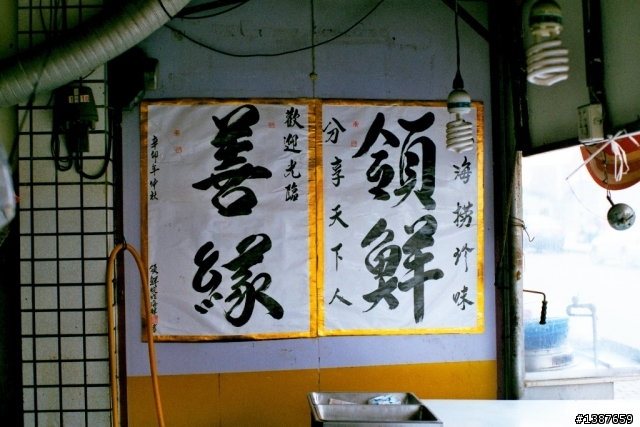 海撈珍味
領鮮
分享天下人
歡迎光臨
善緣
辛卯年仲秋
#1387659